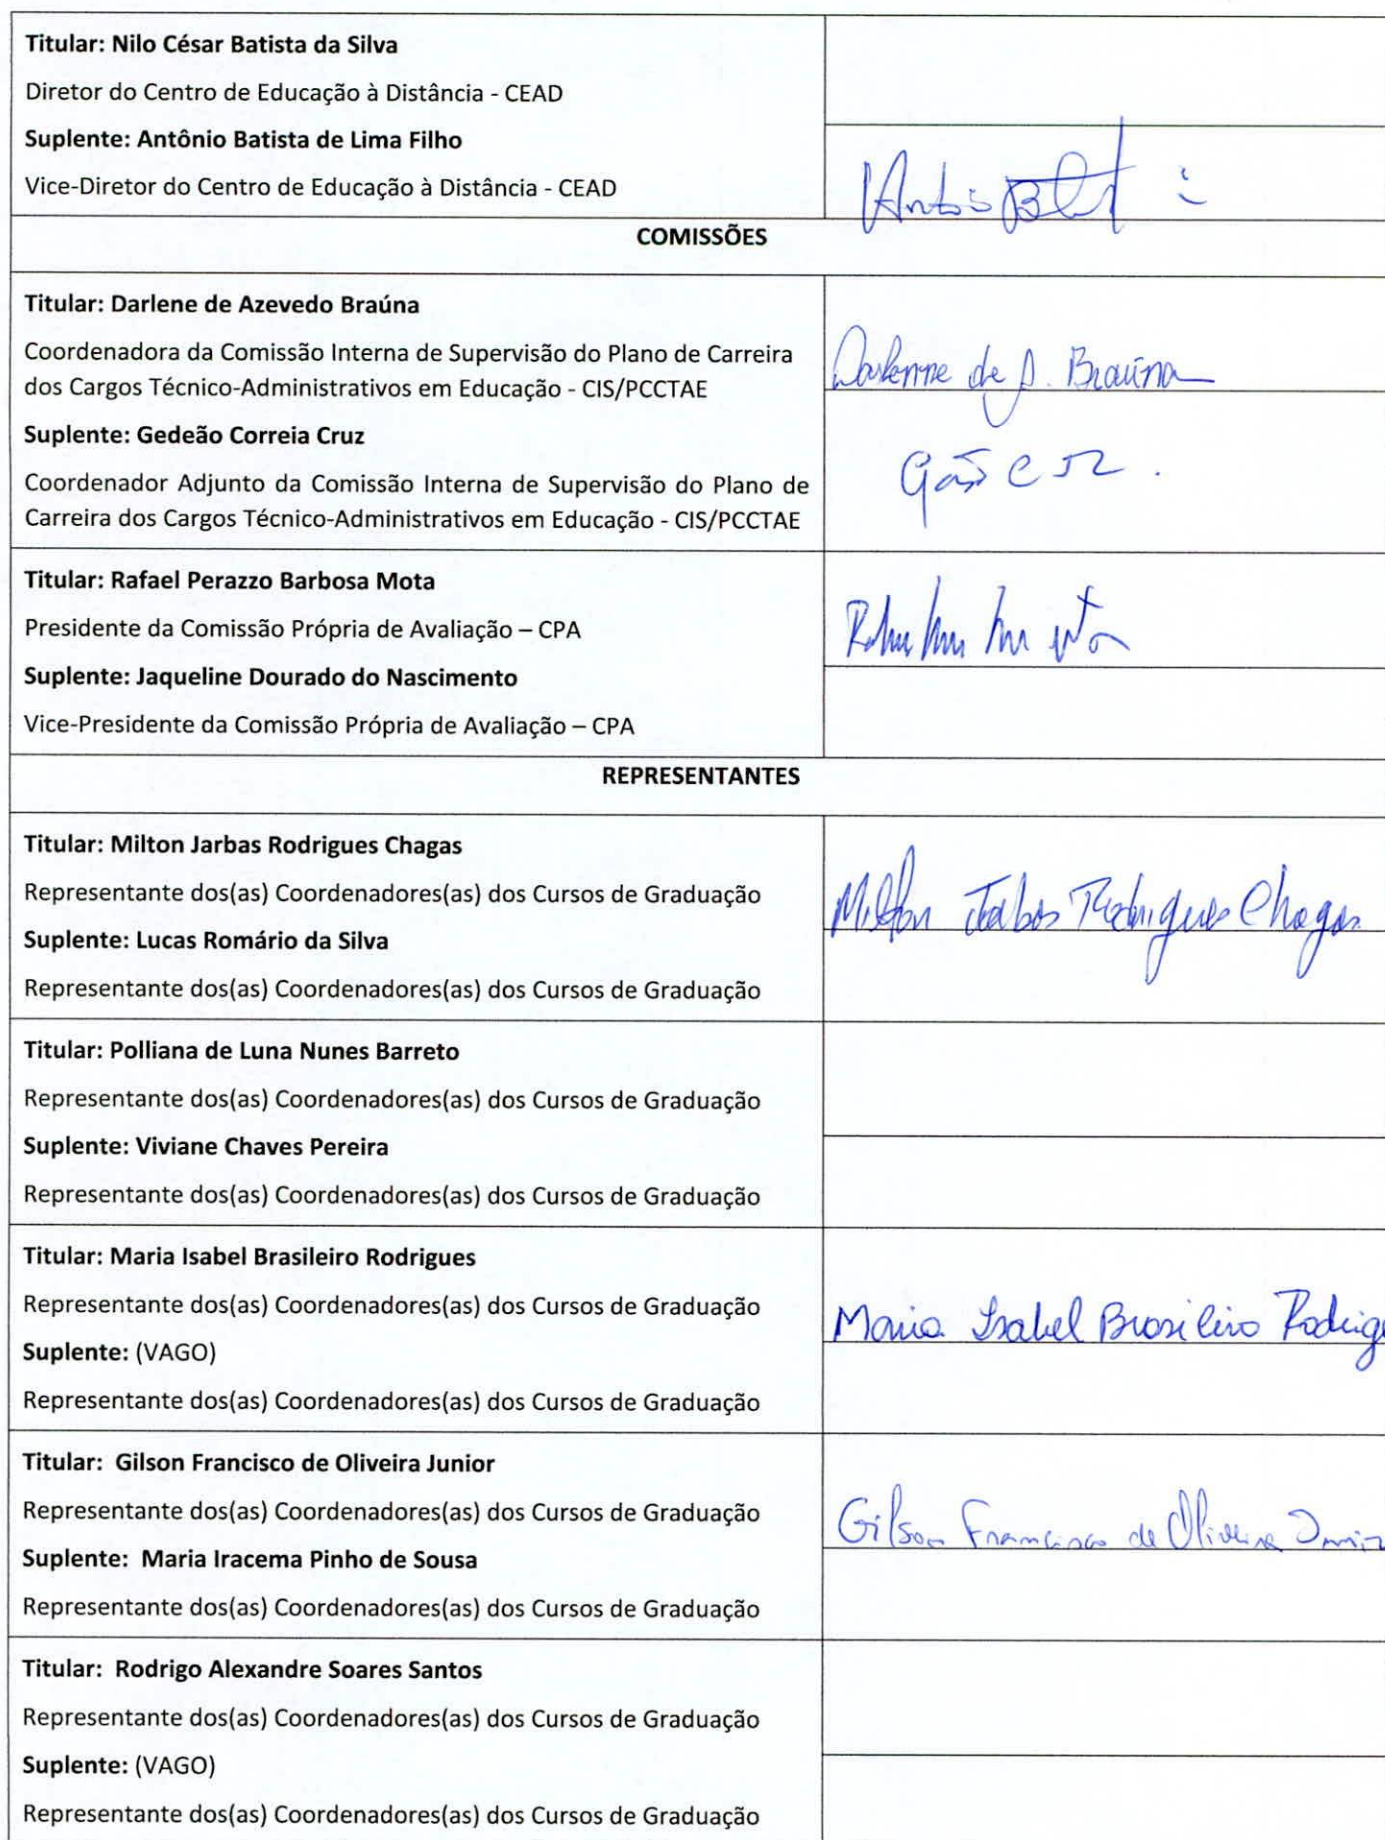 Titular: Nilo César Batista da Silva
Diretor do Centro de Educação à Distância - CEAD
Suplente: Antônio Batista de Lima Filho
Vice-Diretor do Centro de Educação à Distância - CEAD
COMISSÕES
Titular: Darlene de Azevedo Braúna
Coordenadora da Comissão Interna de Supervisão do Plano de Carreira
dos Cargos Técnico-Administrativos em Educação - CIS/PCCTAE
Darlenne de A. Braúna
Suplente: Gedeão Correia Cruz
Coordenador Adjunto da Comissão Interna de Supervisão do Plano de
Carreira dos Cargos Técnico-Administrativos em Educação - CIS/PCCTAE
Titular: Rafael Perazzo Barbosa Mota
Presidente da Comissão Própria de Avaliação – CPA
Suplente: Jaqueline Dourado do Nascimento
Vice-Presidente da Comissão Própria de Avaliação – CPA
REPRESENTANTES
Titular: Milton Jarbas Rodrigues Chagas
Representante dos(as) Coordenadores(as) dos Cursos de Graduação
Milton Jarbas Rodrigues Chagas
Suplente: Lucas Romário da Silva
Representante dos(as) Coordenadores(as) dos Cursos de Graduação
Titular: Polliana de Luna Nunes Barreto
Representante dos(as) Coordenadores(as) dos Cursos de Graduação
Suplente: Viviane Chaves Pereira
Representante dos(as) Coordenadores(as) dos Cursos de Graduação
Titular: Maria Isabel Brasileiro Rodrigues
Representante dos(as) Coordenadores(as) dos Cursos de Graduação
Maria Isabel Brasileiro Rodrigu
Suplente: (VAGO)
Representante dos(as) Coordenadores(as) dos Cursos de Graduação
Titular: Gilson Francisco de Oliveira Junior
Representante dos(as) Coordenadores(as) dos Cursos de Graduação
Gilson Francisco de Oliveira Junior
Suplente: Maria Iracema Pinho de Sousa
Representante dos(as) Coordenadores(as) dos Cursos de Graduação
Titular: Rodrigo Alexandre Soares Santos
Representante dos(as) Coordenadores(as) dos Cursos de Graduação
Suplente: (VAGO)
Representante dos(as) Coordenadores(as) dos Cursos de Graduação